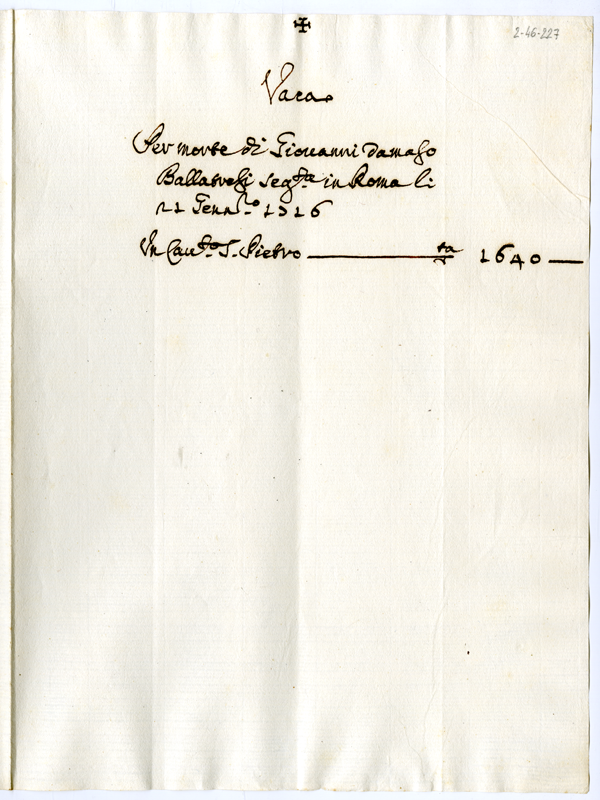 ✠
2-46-227
Vaca
Per morte di Giovanni Damaso
seg.ta in Roma li
21 Genn.ro 1716
In Cau.to S. Pietro ta 1640